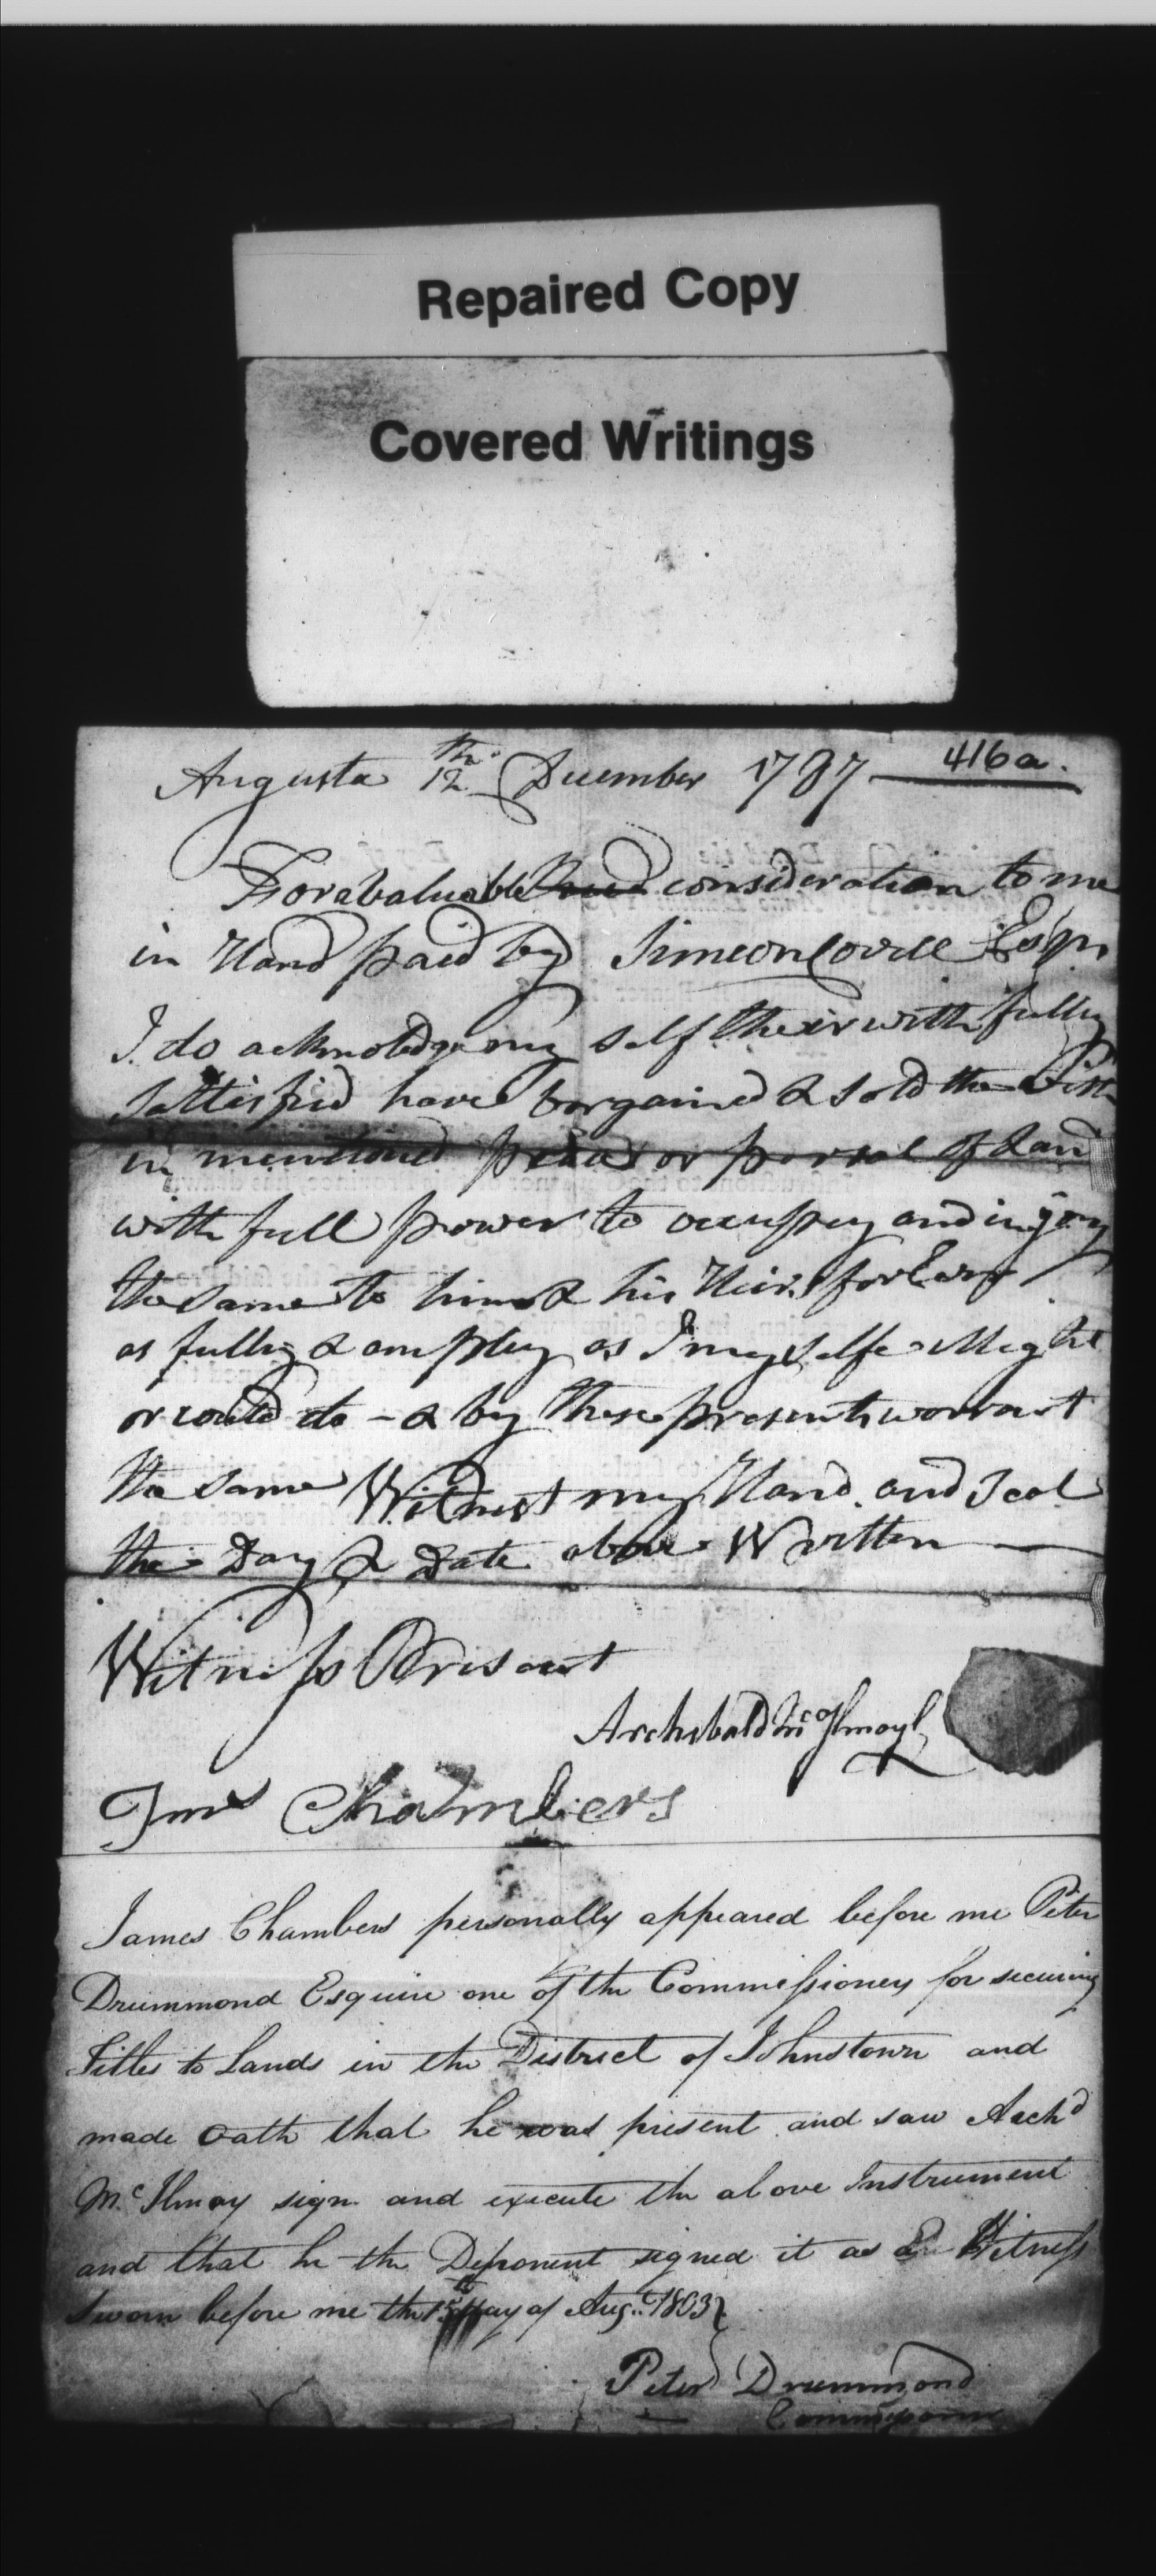 Repaired Copy
Covered Writings
416a.
Augusta 12th. December 1787
For a valuable consideration to me
in Hand paid by Simeon Covell Esqr
I do acknoledge my self their with fully
sattisfied have bargained & sold the
in mentioned or parsal of Land
with full power to occupey and injoy
the same to him & his Heirs for Ever
as fully & ampley as I my selfe Might
or could do - & by these presents warrant
the same Witness my Hand and Seal
the Day & Date above Written
Witness Presant
Archibald McIlmoyl
Jms Chambers
James Chambers personally appeared before me Peter
Drummond Esquire one of the Commissioners for securing
Titles to Lands in the District of Johnstown and
made oath that he was present and saw Archd
Mc.Ilmoy sign and execute the above Instrument
and that he the Deponent signed it as a Witness
Sworn before me the day of Aug. 1803
Peter Drummond
Commissioner